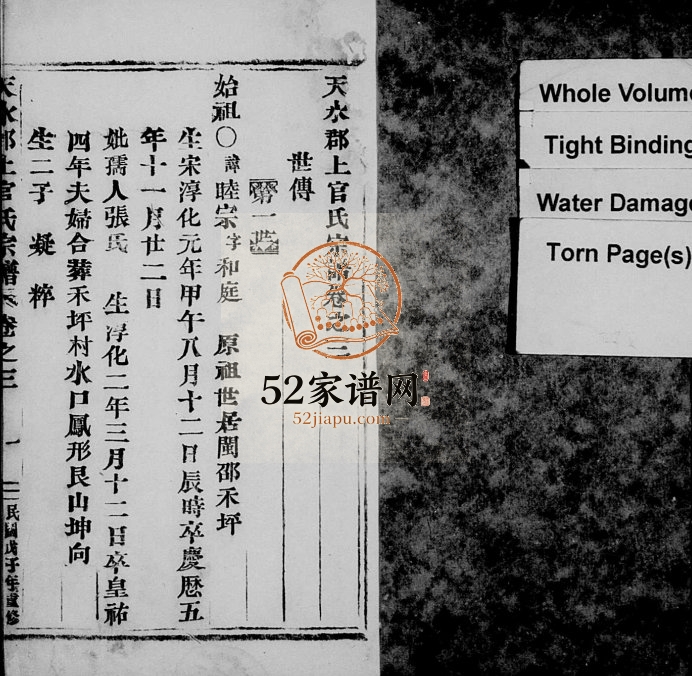 天水郡上官氏宗譜卷之三
世傳
第一世
始祖〇諱睦宗字和庭 原祖世居閩邵禾坪
生宋淳化元年甲午八月十二日辰時卒慶曆五
年十一月廿二日
妣孺人張氏 生淳化二年三月十二日卒皇祐
四年夫婦合葬禾坪村水口鳳形艮山坤向
生二子 凝 粹
天水郡上官氏宗譜 卷之三 一 民國戊子年重修
52家谱网
52jiapu.com
Whole Volume
Tight Binding
Water Damage
Torn Page(s)